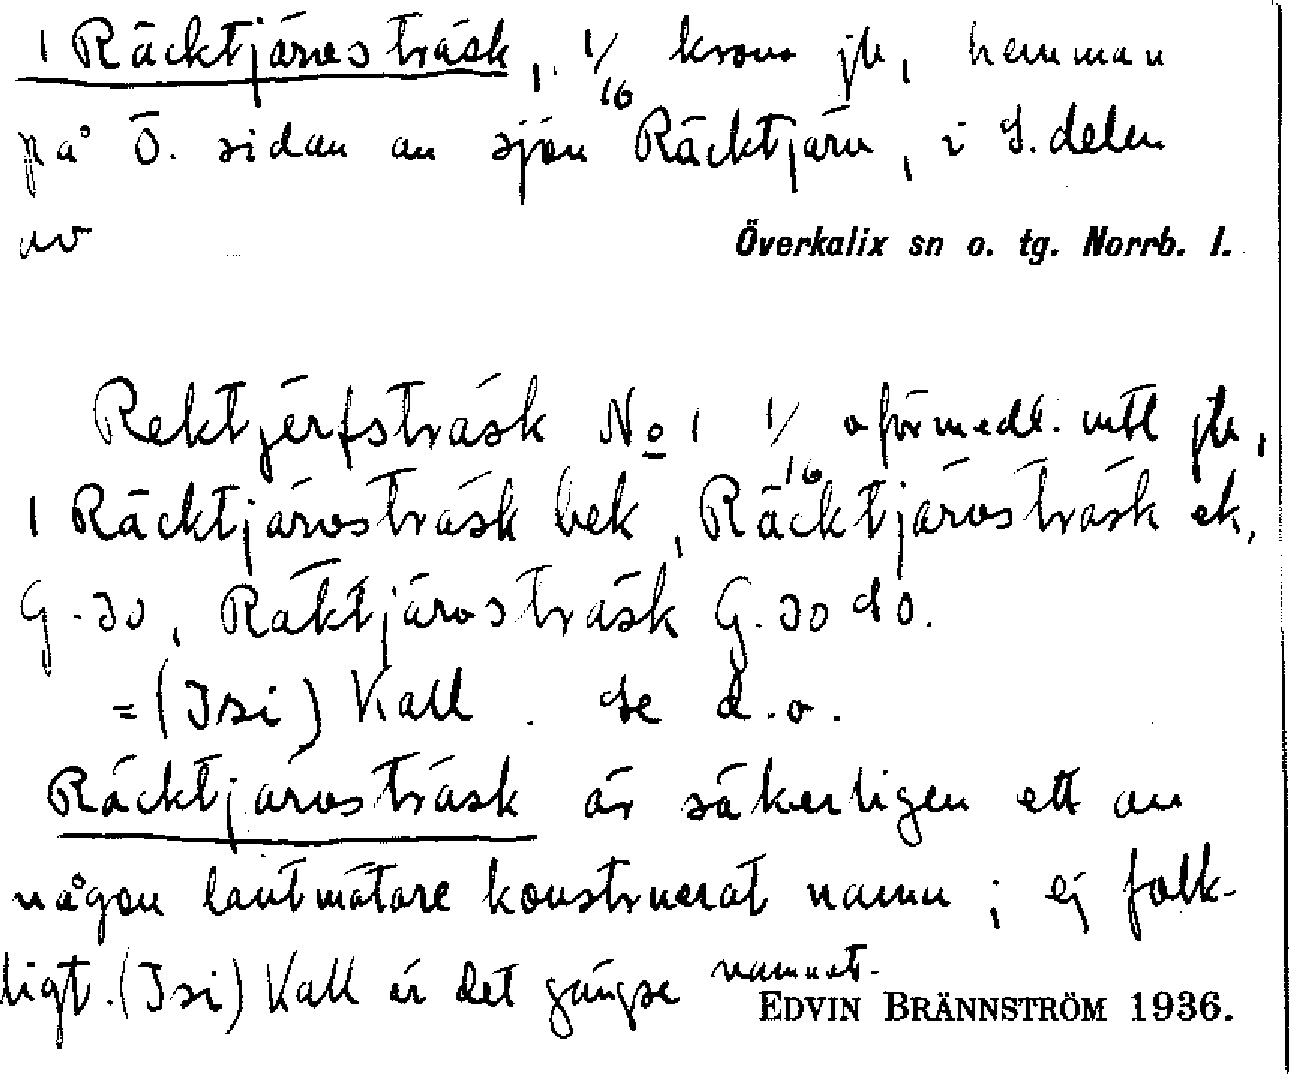 1 Räcktjärvsträsk, 1/16 krono jb, hemman
på Ö. sidan av sjön Räcktjärv, i S. delen
av Överkalix sn o. tg. Norrb. l.
Rektjerfsträsk No 1 1/16 oförmedl. mtl jb,
1 Räcktjärvsträsk bek, Räcktjärvsträsk ek,
G. jo, Räktjärvsträsk G. jo do.
= (Isi) Kall. Se d.o.
Räcktjärvsträsk är säkerligen ett av
någon lantmätare konstruerat namn; ej folk-
ligt. (Isi) Kall är det gängse namnet.
EDVIN BRÄNNSTRÖM 1936.